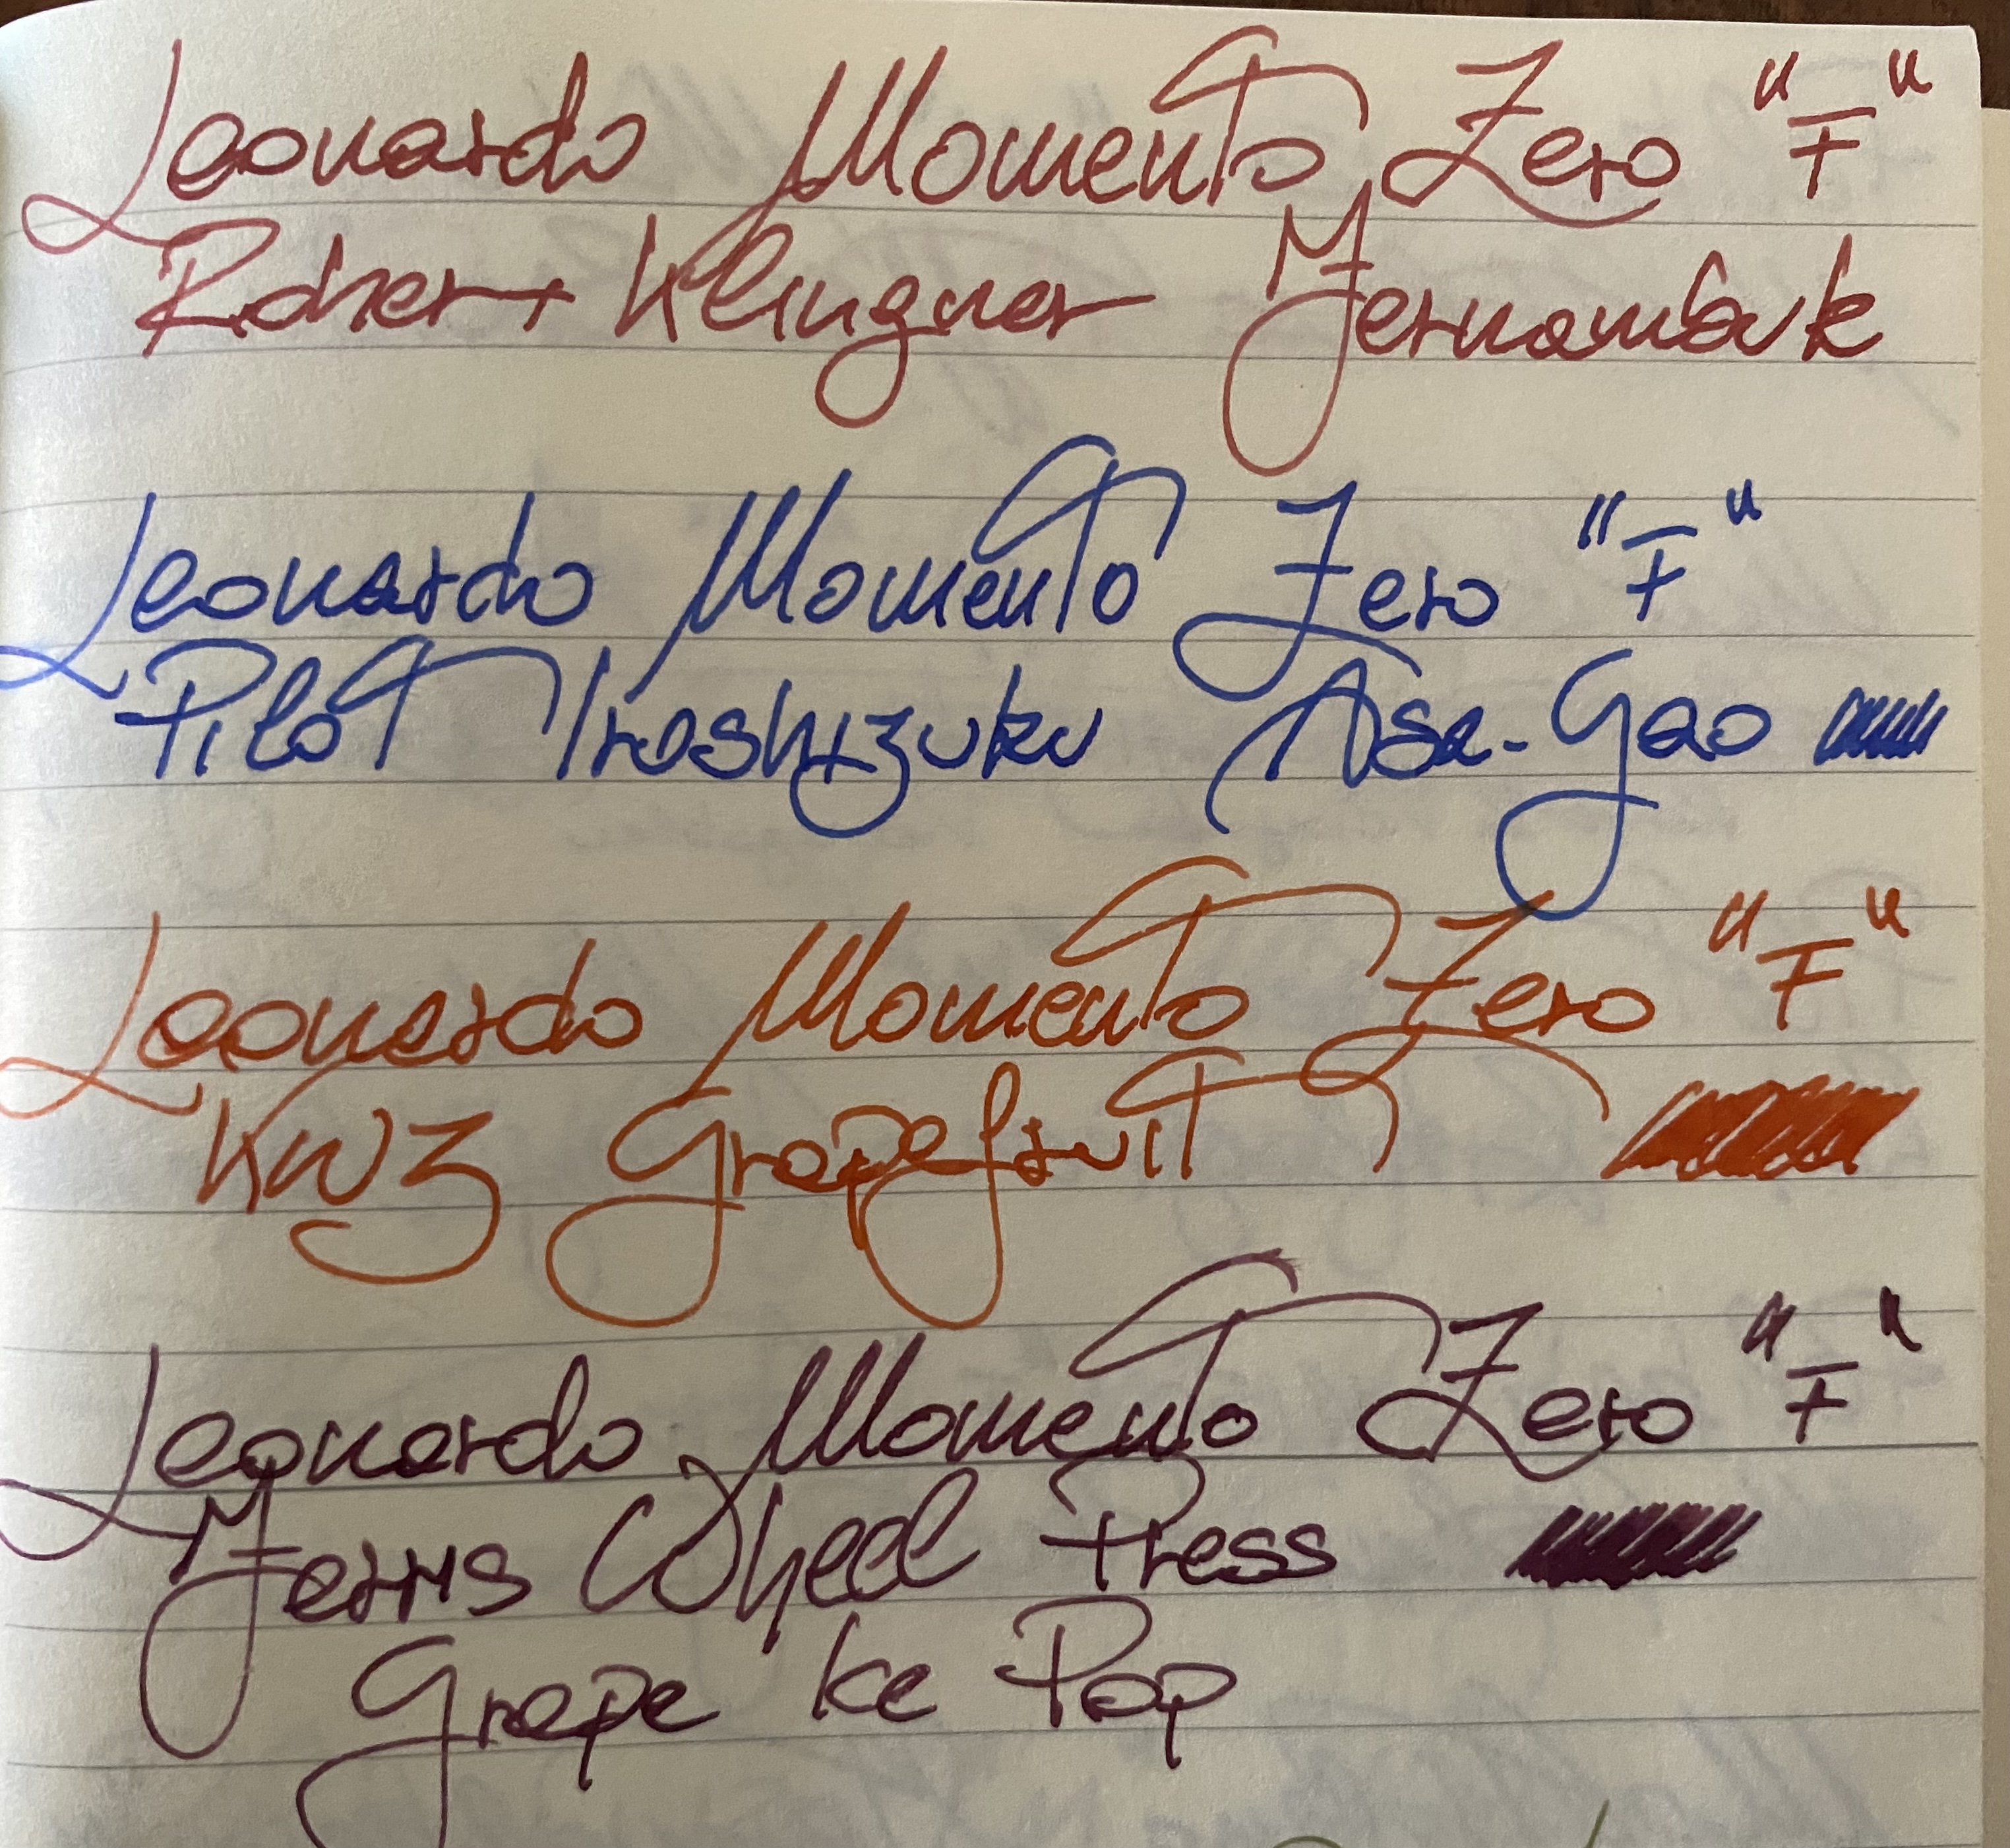 Leonardo Momento Zero "F"
Rohrer + Klingner Fernambuk
Leonardo Momento Zero "F"
Pilot Iroshizuku Asa-Gao
Leonardo Momento Zero "F"
KWZ Grapefruit
Leonardo Momento Zero "F"
Ferris Wheel Press
Grape Ice Pop